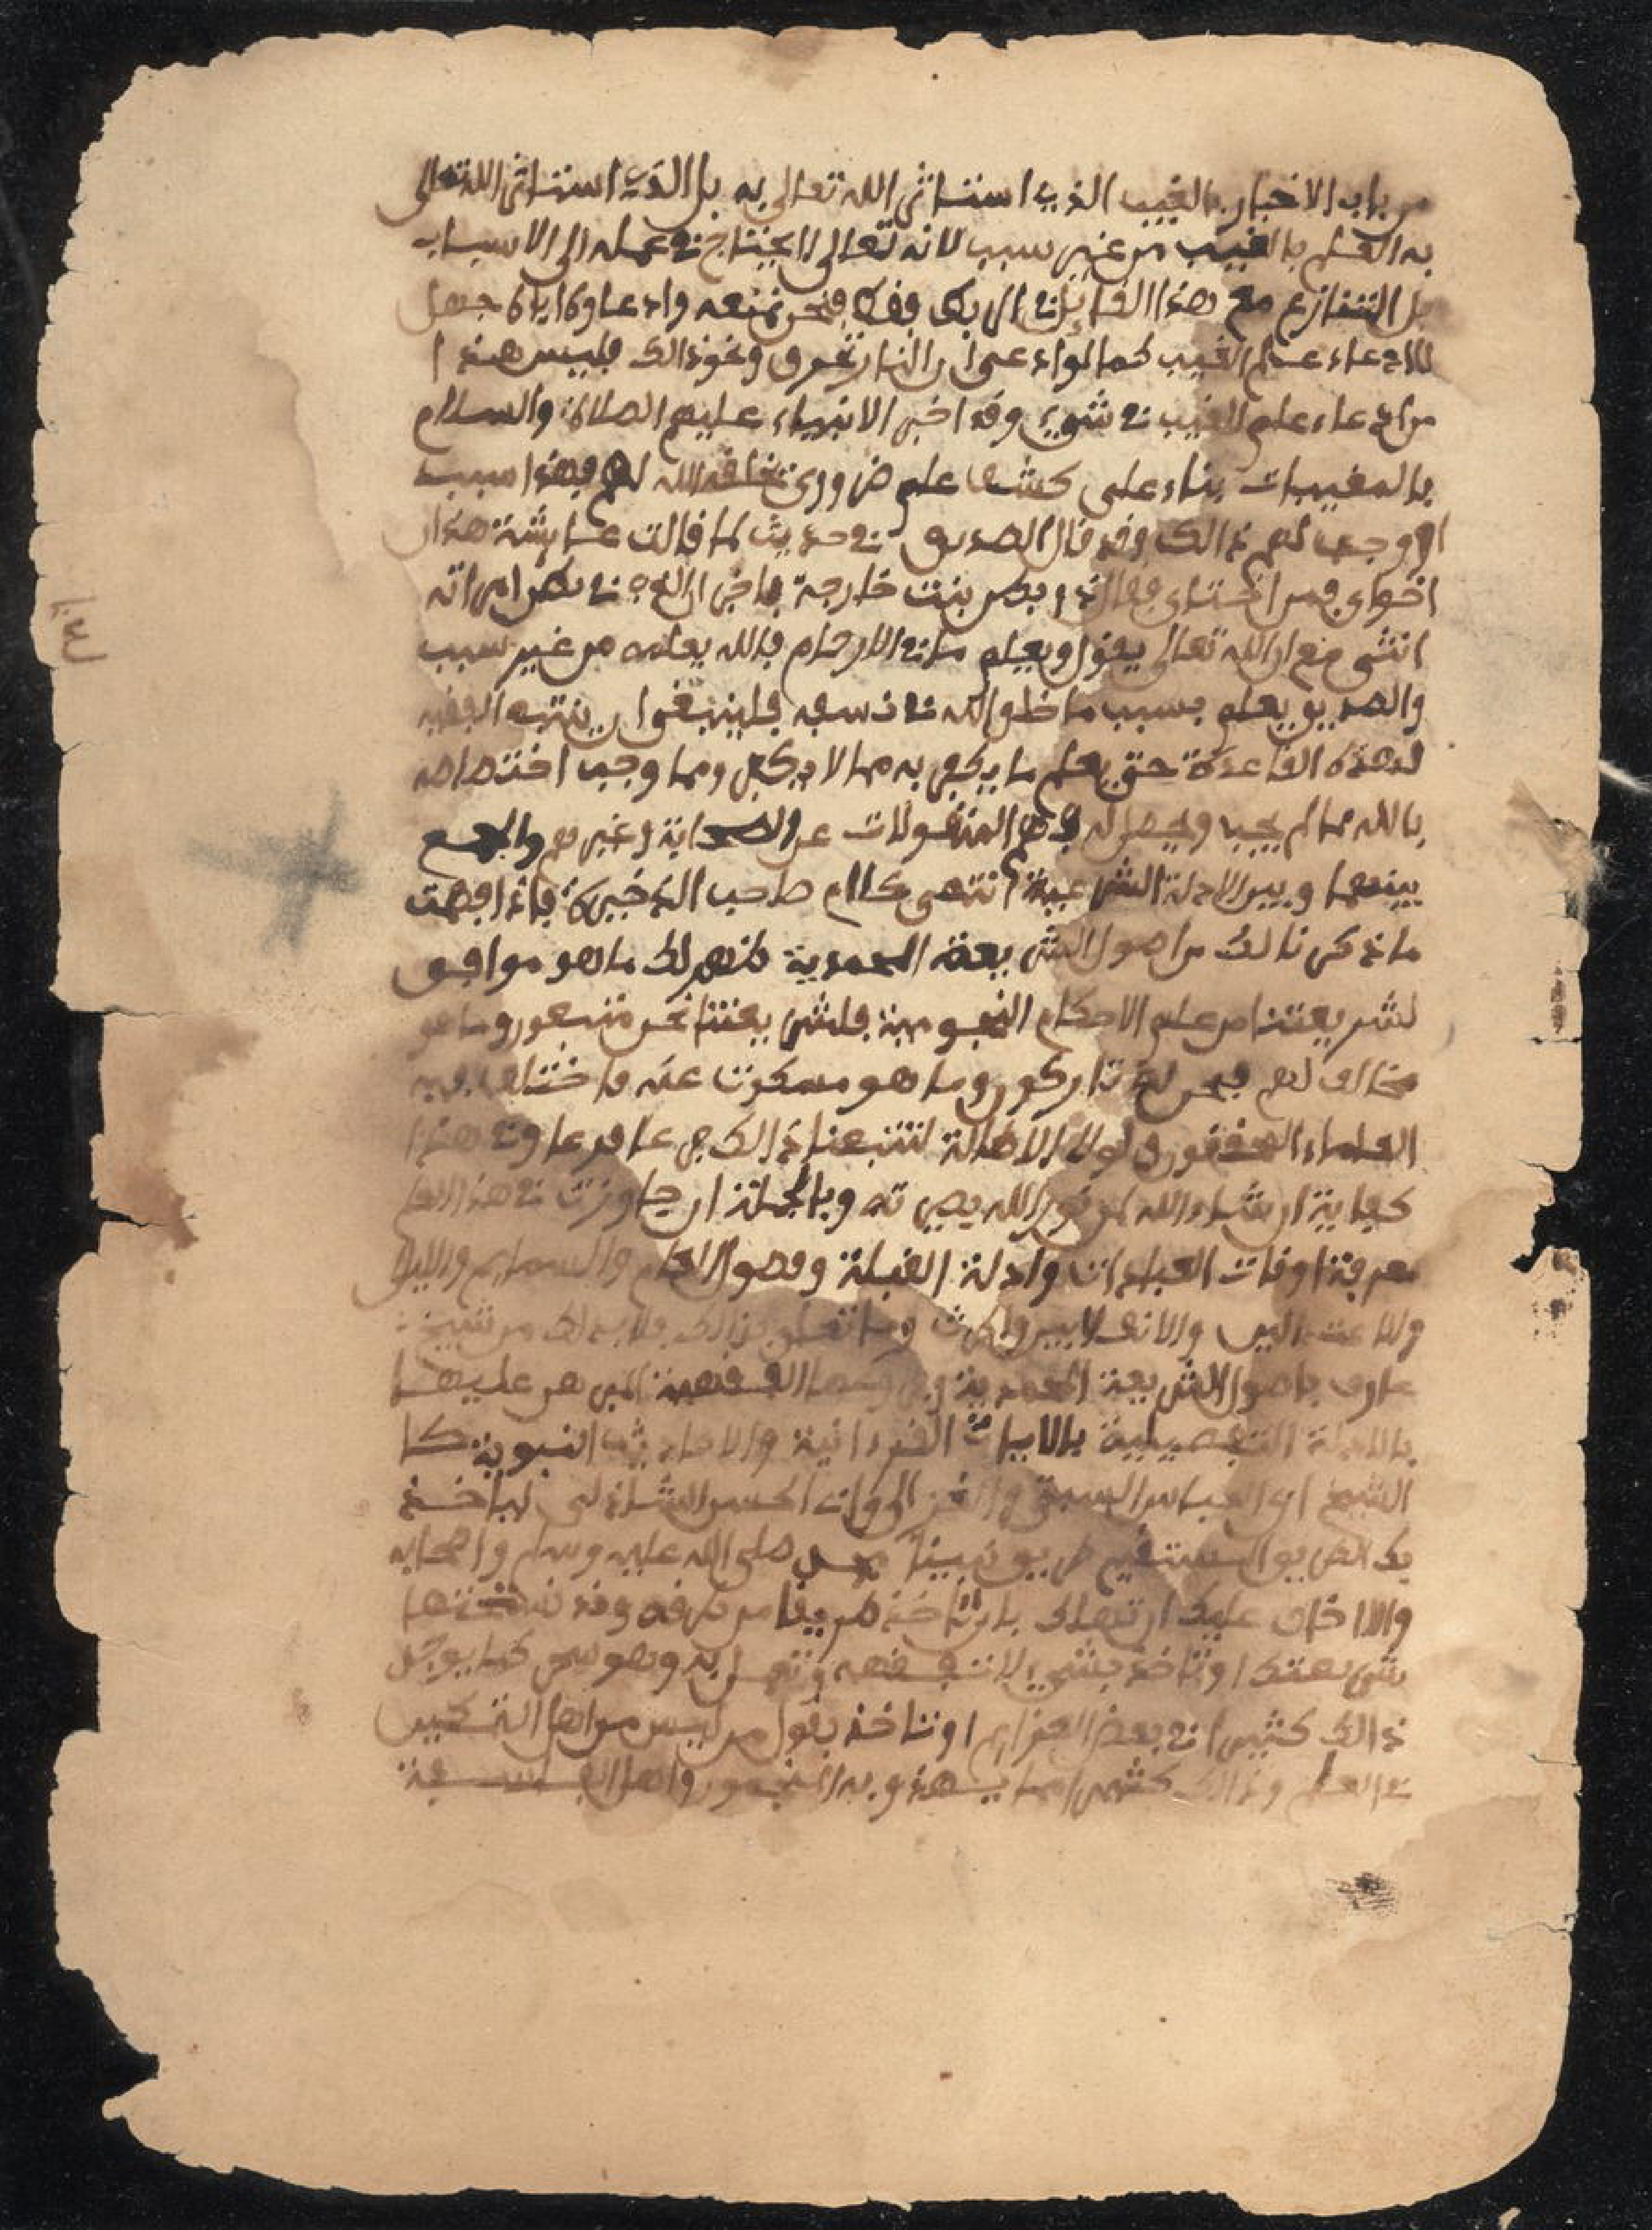 من باب الاخبار بالغيب الذي استاثر الله تعالى به بل الذي استاثر الله تعالى
به العلم بالغيب من غير سبب لانه تعالى لا يحتاج في علمه الى الاسباب
بل التنازع مع هذا القايل في الربط فقط فنحن نمنعه وادعاوه اياه جهل
للادعاء علم الغيب كما لو ادعى ان النار تغرق ونحو ذالك فليس هذا
من ادعاء علم الغيب في شيء وقد اخبر الانبياء عليهم الصلاة والسلام
بالمغيبات بناء على كشف علم ضروري خلقه الله لهم فهذا سبب
اوجب لهم ذالك وقد قال الصديق في حديث لما قالت عايشة هذان
اخواي فمن اختاي فقال ذو بطن بنت خارجة فاخبر ان الذي في بطن امراته
انثى مع ان الله تعالى يقول ويعلم ما في الارحام فالله يعلمه من غير سبب
والصديق يعلم بسبب ما خلق الله في نفسه فلينبغي ان ينتبه الفقيه
لهذه القاعدة حتى يعلم ما يكفر به مما لا يكفر ومما وجب اختصاصه
بالله مما لم يجب ويحصل له فهم المنقولات عن الصحابة وغيرهم والجمع
بينهما وبين الادلة الشرعية انتهى كلام صاحب الذخيرة فاذا فهمت
ما ذكرنا لك من اصول الشريعة المحمدية ظهر لك ما هو موافق
لشريعتنا من علم الاحكام النجومية فلشريعتنا نحن متبعون وما هو
مخالف لهم فنحن له تاركون وما هو مسكوت عنه فاختلف فيه
العلماء المحققون ولولا الاطالة لتتبعنا ذالك فرعا فرعا وفي هذا
كفاية ان شاء الله لمن نور الله بصيرته وبالجملة ان جاوزت في هذا العلم
معرفة اوقات العبادات وادلة القبلة وفصول العام والسمايم والليالي
ولا والحرث وما تعلق بذالك فلا بد لك من شيخ
عارف باصول الشريعة المحمدية الفقهية
بالادلة التفصيلية بالايات القرءانية والاحاديث النبوية كا
الشيخ ابي العباس السبتي الحسن الشاذلي لياخذ
بك الطريق المستقيم طريق نبينا محمد صلى الله عليه وسلم واصحابه
والا اخاف عليك ان تهلك بان تاخذ طريقا
شريعتك او تاخذ بشيء لا تفقهه وتعمل به وهو سحر كما يوجد
ذالك كثيرا في بعض العزايم او تاخذ بقول من ليس من اهل التحـ
في العلم وذالك كثير مما به المنجمون واهل الفلسفة